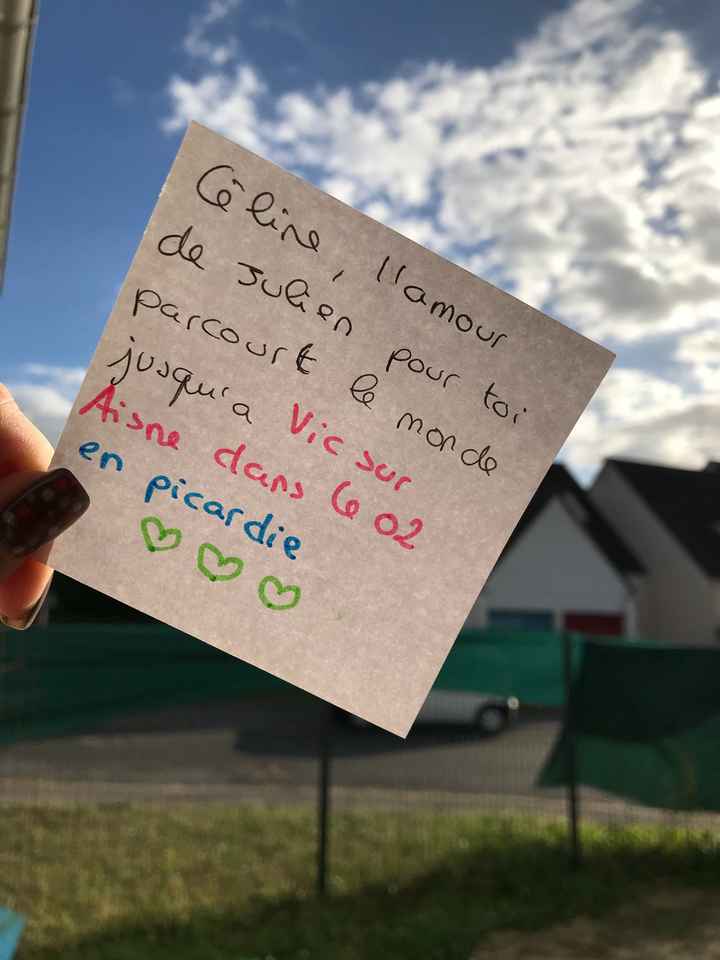 Céline, l'amour
de Julien pour toi
parcourt le monde
jusqu'a Vic sur
Aisne dans le 02
en picardie